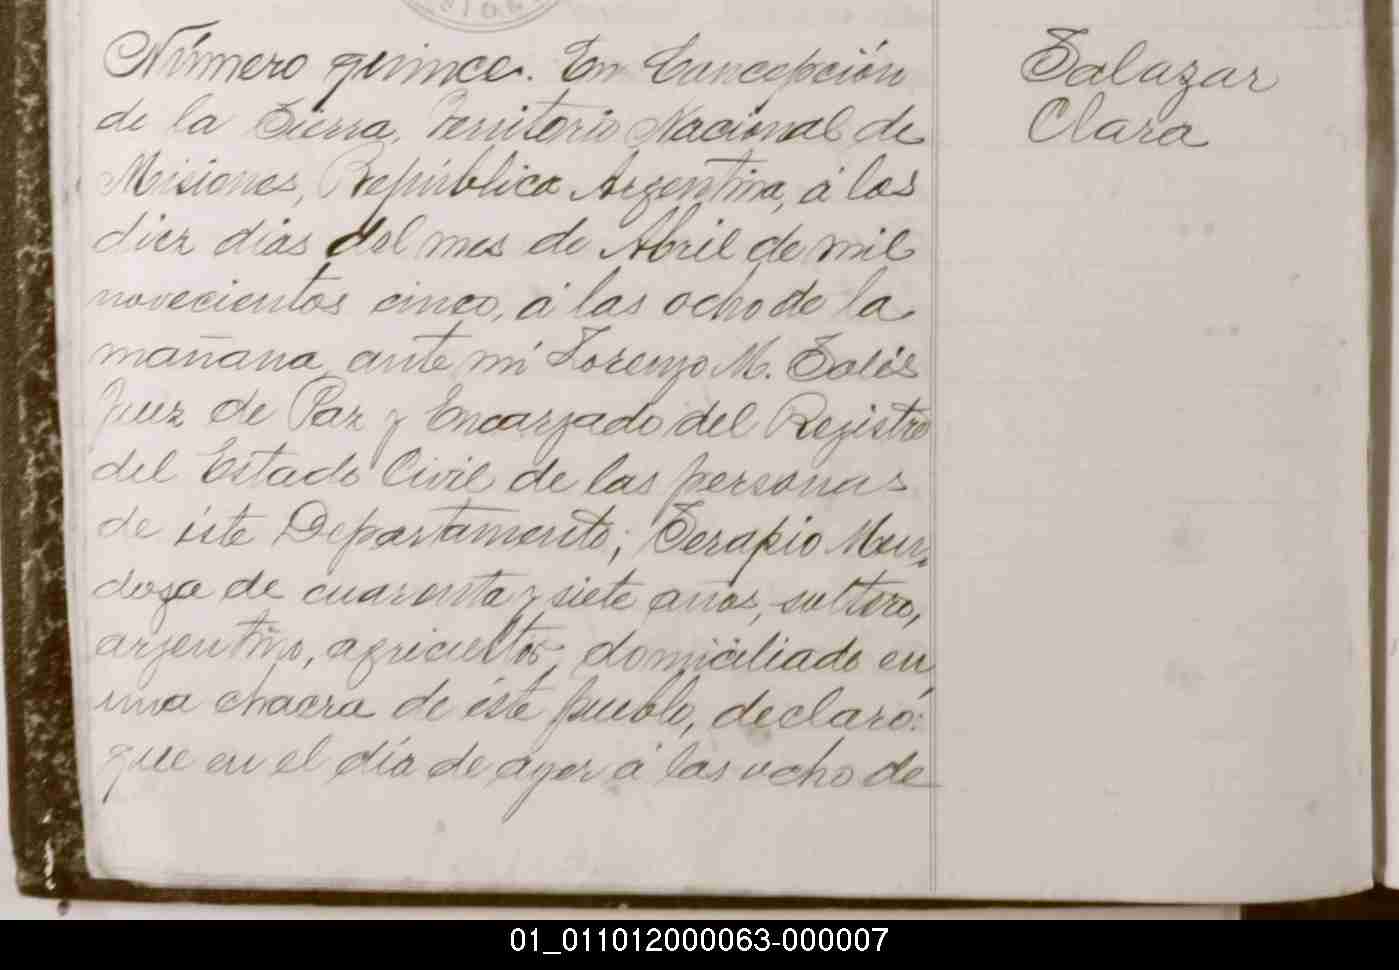 Número quince. En Concepción
de la Sierra, Territorio Nacional de
Misiones, República Argentina, á los
diez dias del mes de Abril de mil
novecientos cinco, á las ocho de la
mañana, ante mí Lorenzo M. Solís
Juez de Paz y Encargado del Registro
del Estado Civil de las personas
de éste Departamento; Serapio Men-
doza de cuarenta y siete años, soltero,
argentino, agricultor, domiciliado en
una chacra de éste pueblo, declaró:
que en el día de ayer á las ocho de
Salazar
Clara
01_011012000063-000007